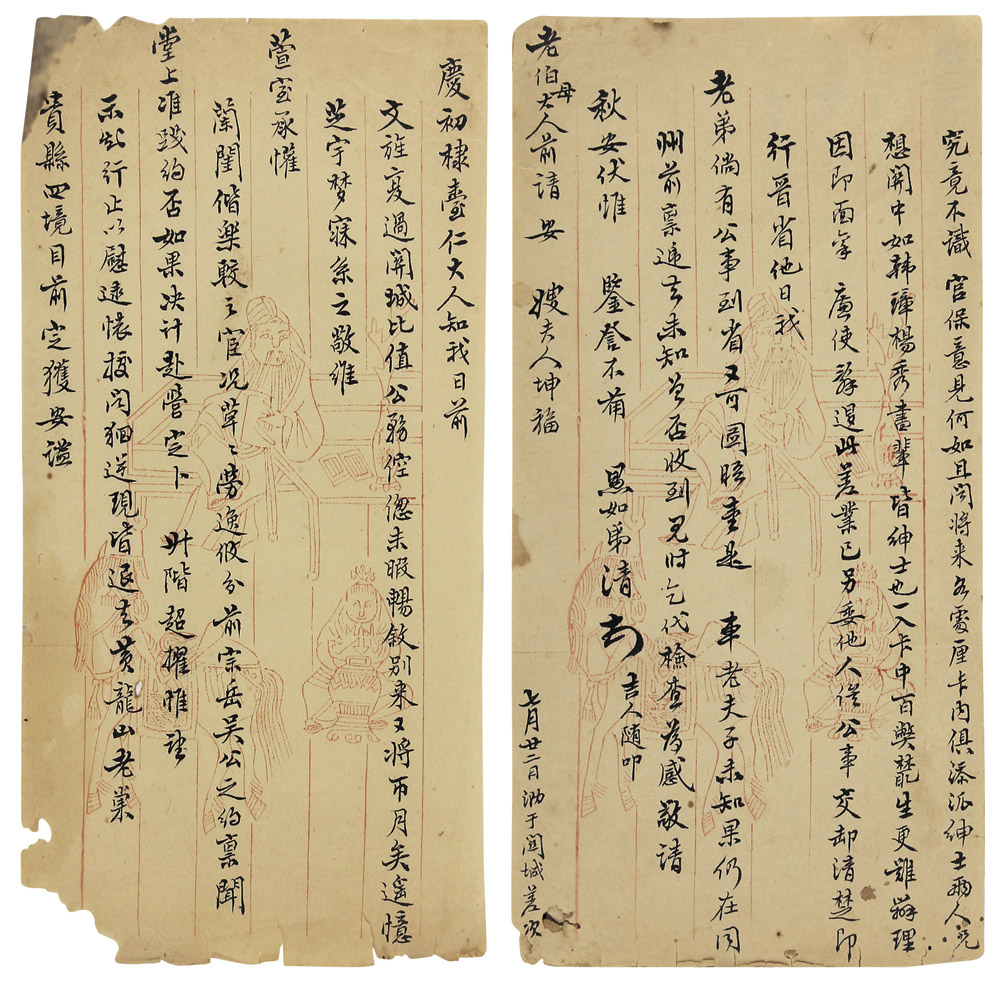 慶初棣臺仁大人知我日前
文旌度過開城比值公務倥偬未暇暢敘別來又將帀月矣遥憶
芝宇夢寐系之敬維
萱室承懽
閨閫偕樂較之宦况草草勞逸攸分前宗岳吴公之約禀聞
堂上准踐約否如果决计赴營定卜 升階超擢惟望
示知行止以慰遠懷授閱狪逆現皆退去黄龍山老巢
貴縣四境目前定獲安谧
究竟不識 官保意見何如且闻將来各處厘卡内俱添派紳士兩人兄
想開中如韩璋楊秀書輩皆紳士也入卡中百弊叢生更難辦理
因即面禀 廉使辭退此差業已另委他人俟公事交却清楚即
行晋省他日我
老弟倘有公事到省又可圖晤矣是 車老夫子未知果仍在同
州前禀逓去未知曾否收到見时乞代檢查為感敬請
秋安伏惟 鑒詧不莆 愚如弟清 吉人随叩
老伯母大人前請安 嫂夫人坤福
七月廿二日泐于開城差次